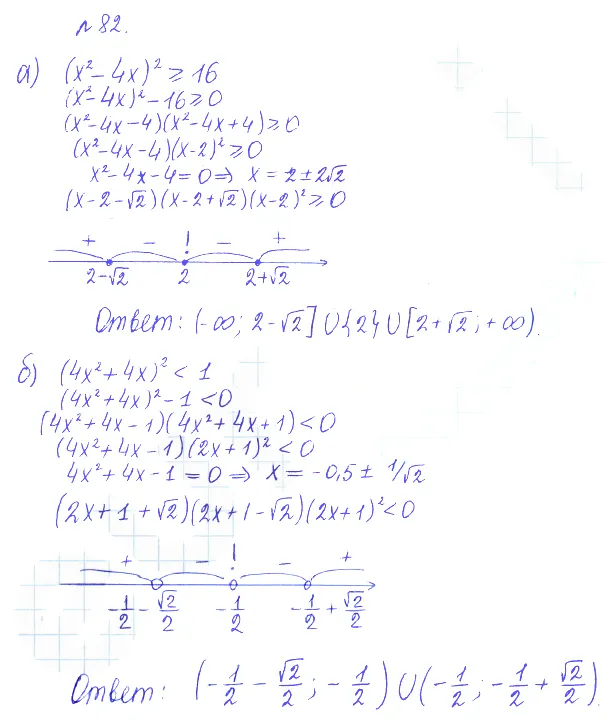 №82.
а) (x² - 4x)² ≥ 16
(x² - 4x)² - 16 ≥ 0
(x² - 4x - 4)(x² - 4x + 4) ≥ 0
(x² - 4x - 4)(x - 2)² ≥ 0
x² - 4x - 4 = 0 ⇒ x = 2 ± 2√2
(x - 2 - √2)(x - 2 + √2)(x - 2)² ≥ 0
+ - ! - +
2-√2 2 2+√2
Ответ: (-∞; 2-√2] ∪ {2} ∪ [2+√2; +∞).
б) (4x² + 4x)² < 1
(4x² + 4x)² - 1 < 0
(4x² + 4x - 1)(4x² + 4x + 1) < 0
(4x² + 4x - 1)(2x + 1)² < 0
4x² + 4x - 1 = 0 ⇒ x = -0,5 ± 1/√2
(2x + 1 + √2)(2x + 1 - √2)(2x + 1)² < 0
+ - ! - +
-1/2 - √2/2 -1/2 -1/2 + √2/2
Ответ: (-1/2 - √2/2; -1/2) ∪ (-1/2; -1/2 + √2/2).